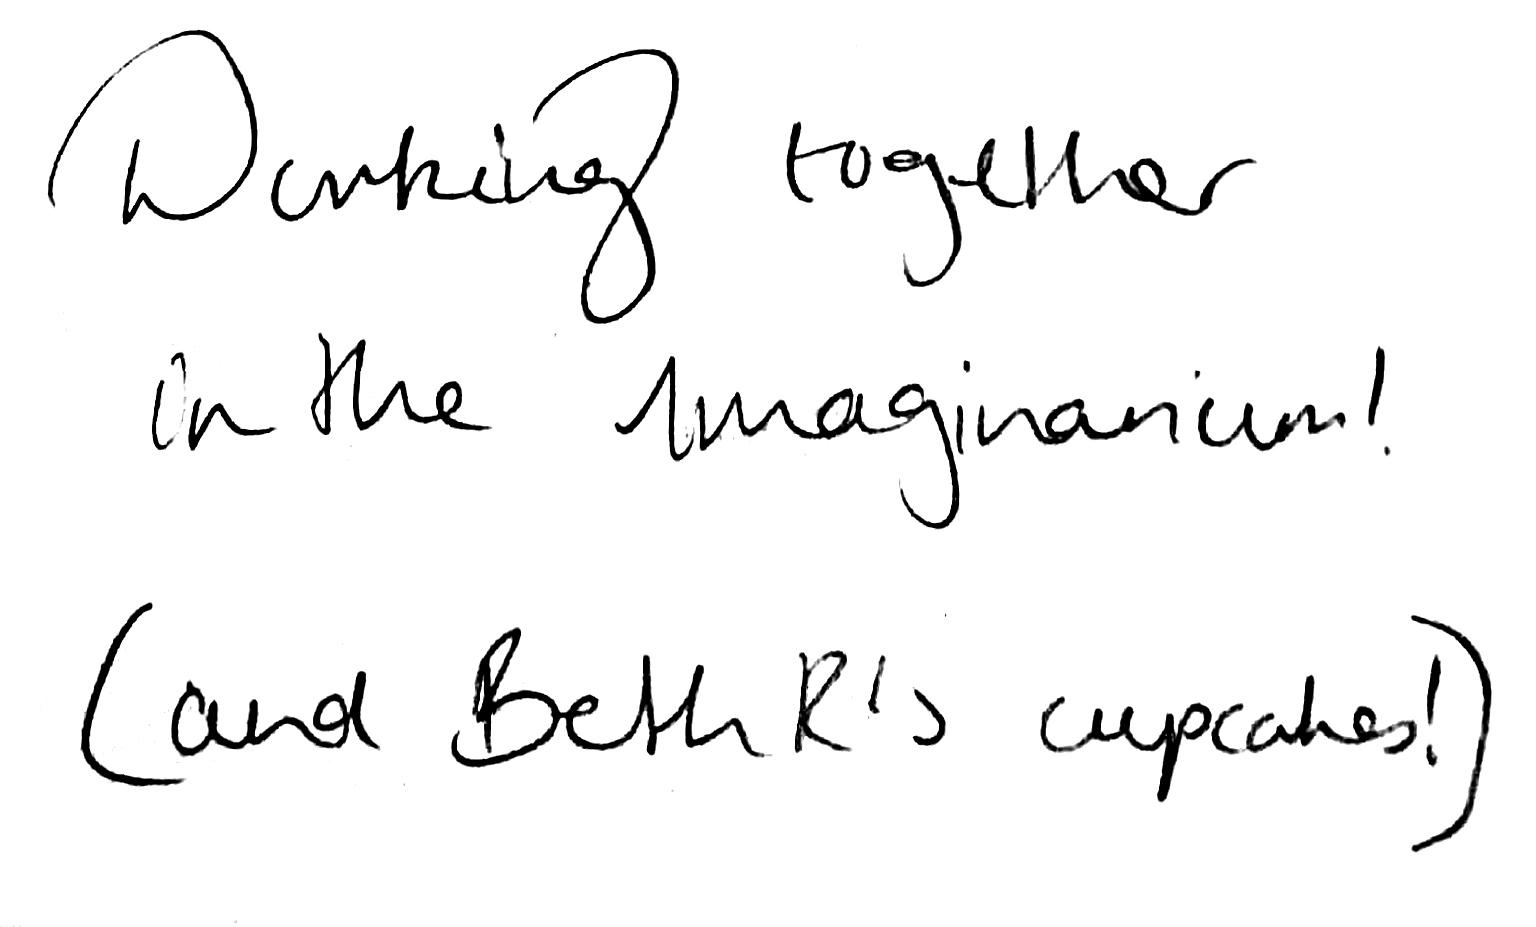 together
in the Imaginarium!
(and Beth R's cupcakes!)